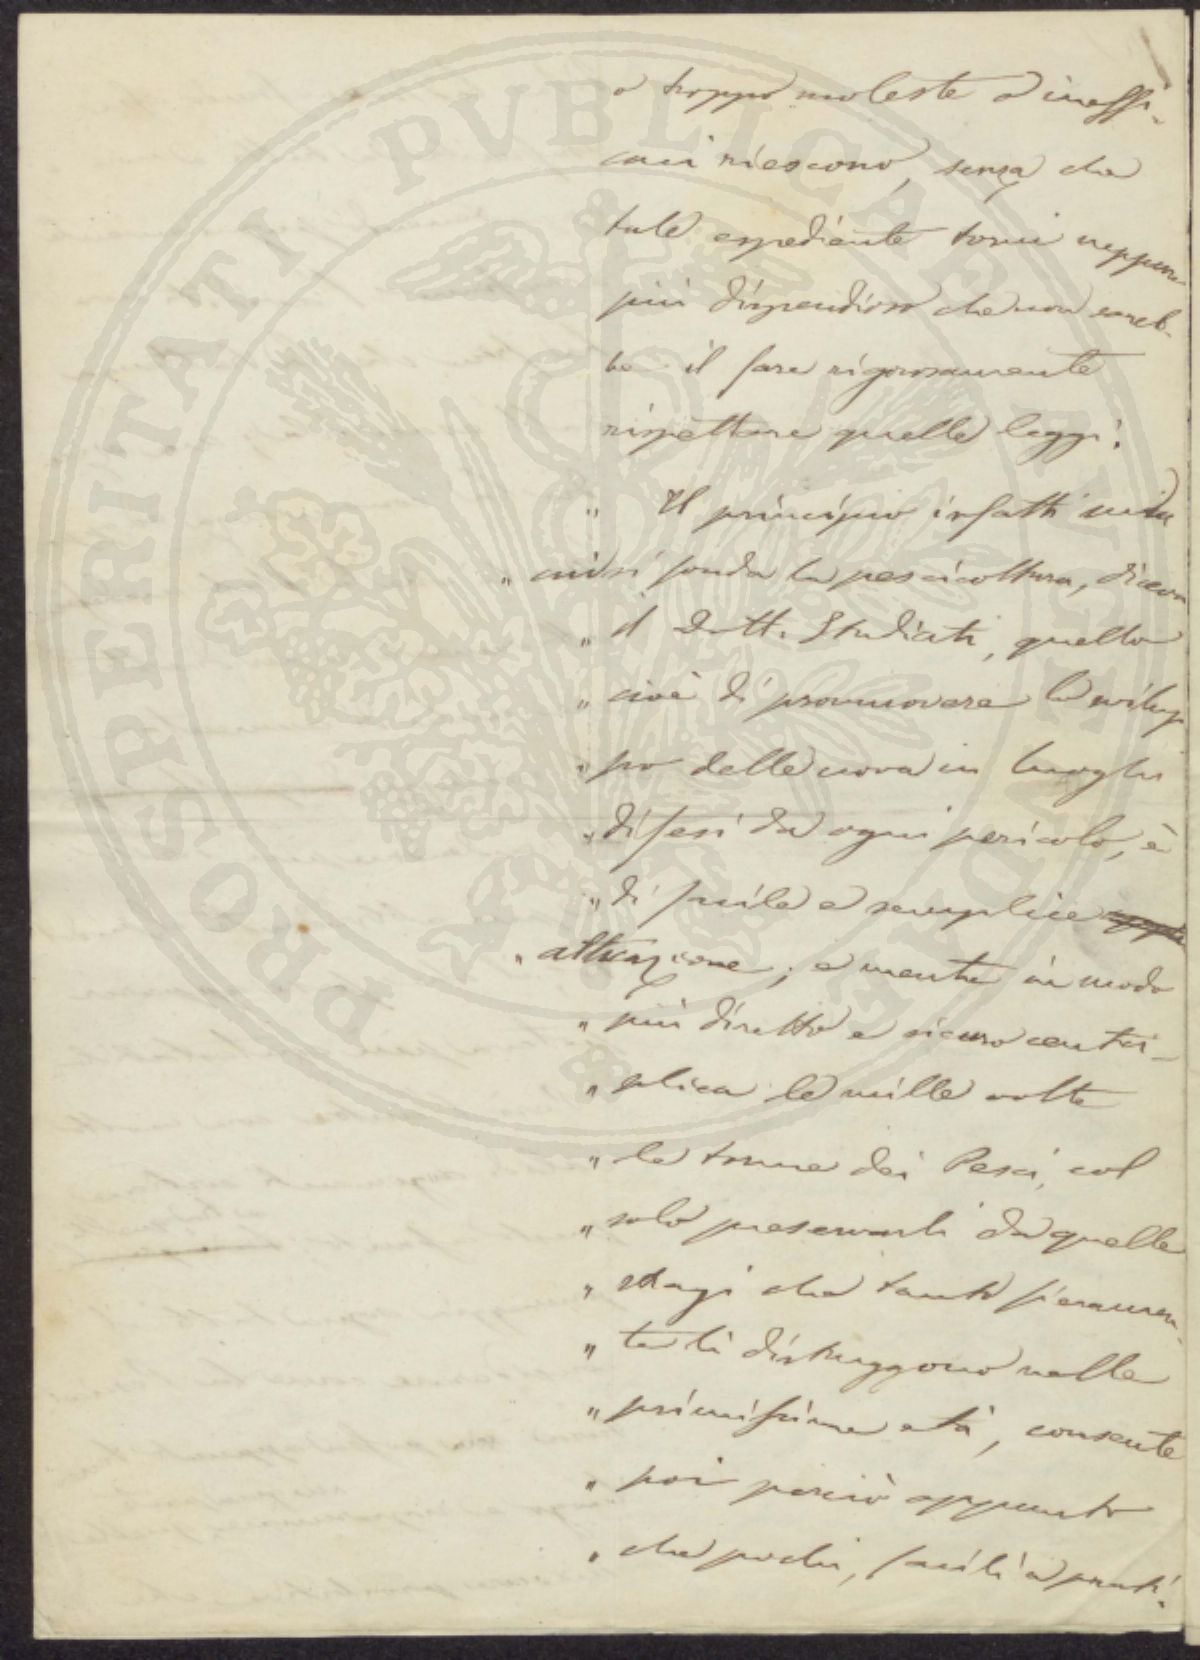 o troppo moleste o ineffi-
caci riescono, senza che
tale espediente torni neppure
più dispendioso che non sareb-
be il fare rigorosamente
rispettare quelle leggi.
" Il principio infatti su
" cui si fonda la pescicoltura, diceva
" il Dott. Studiati, quello
" cioè di promuovere lo svilup
" po delle uova in luoghi
" difesi da ogni pericolo, è
" di facile e semplice
" attuazione; e mentre in modo
" più diretto e sicuro centu-
" plica le mille volte
" le torme dei Pesci, col
" solo preservarli da quelle
" stragi che tanto fieramen-
" te li distruggono nella
" primissima età, consente
" poi perciò appunto
" che pochi, facili a prati-
PROSPERITATI PUBLICAE AUGENDAE